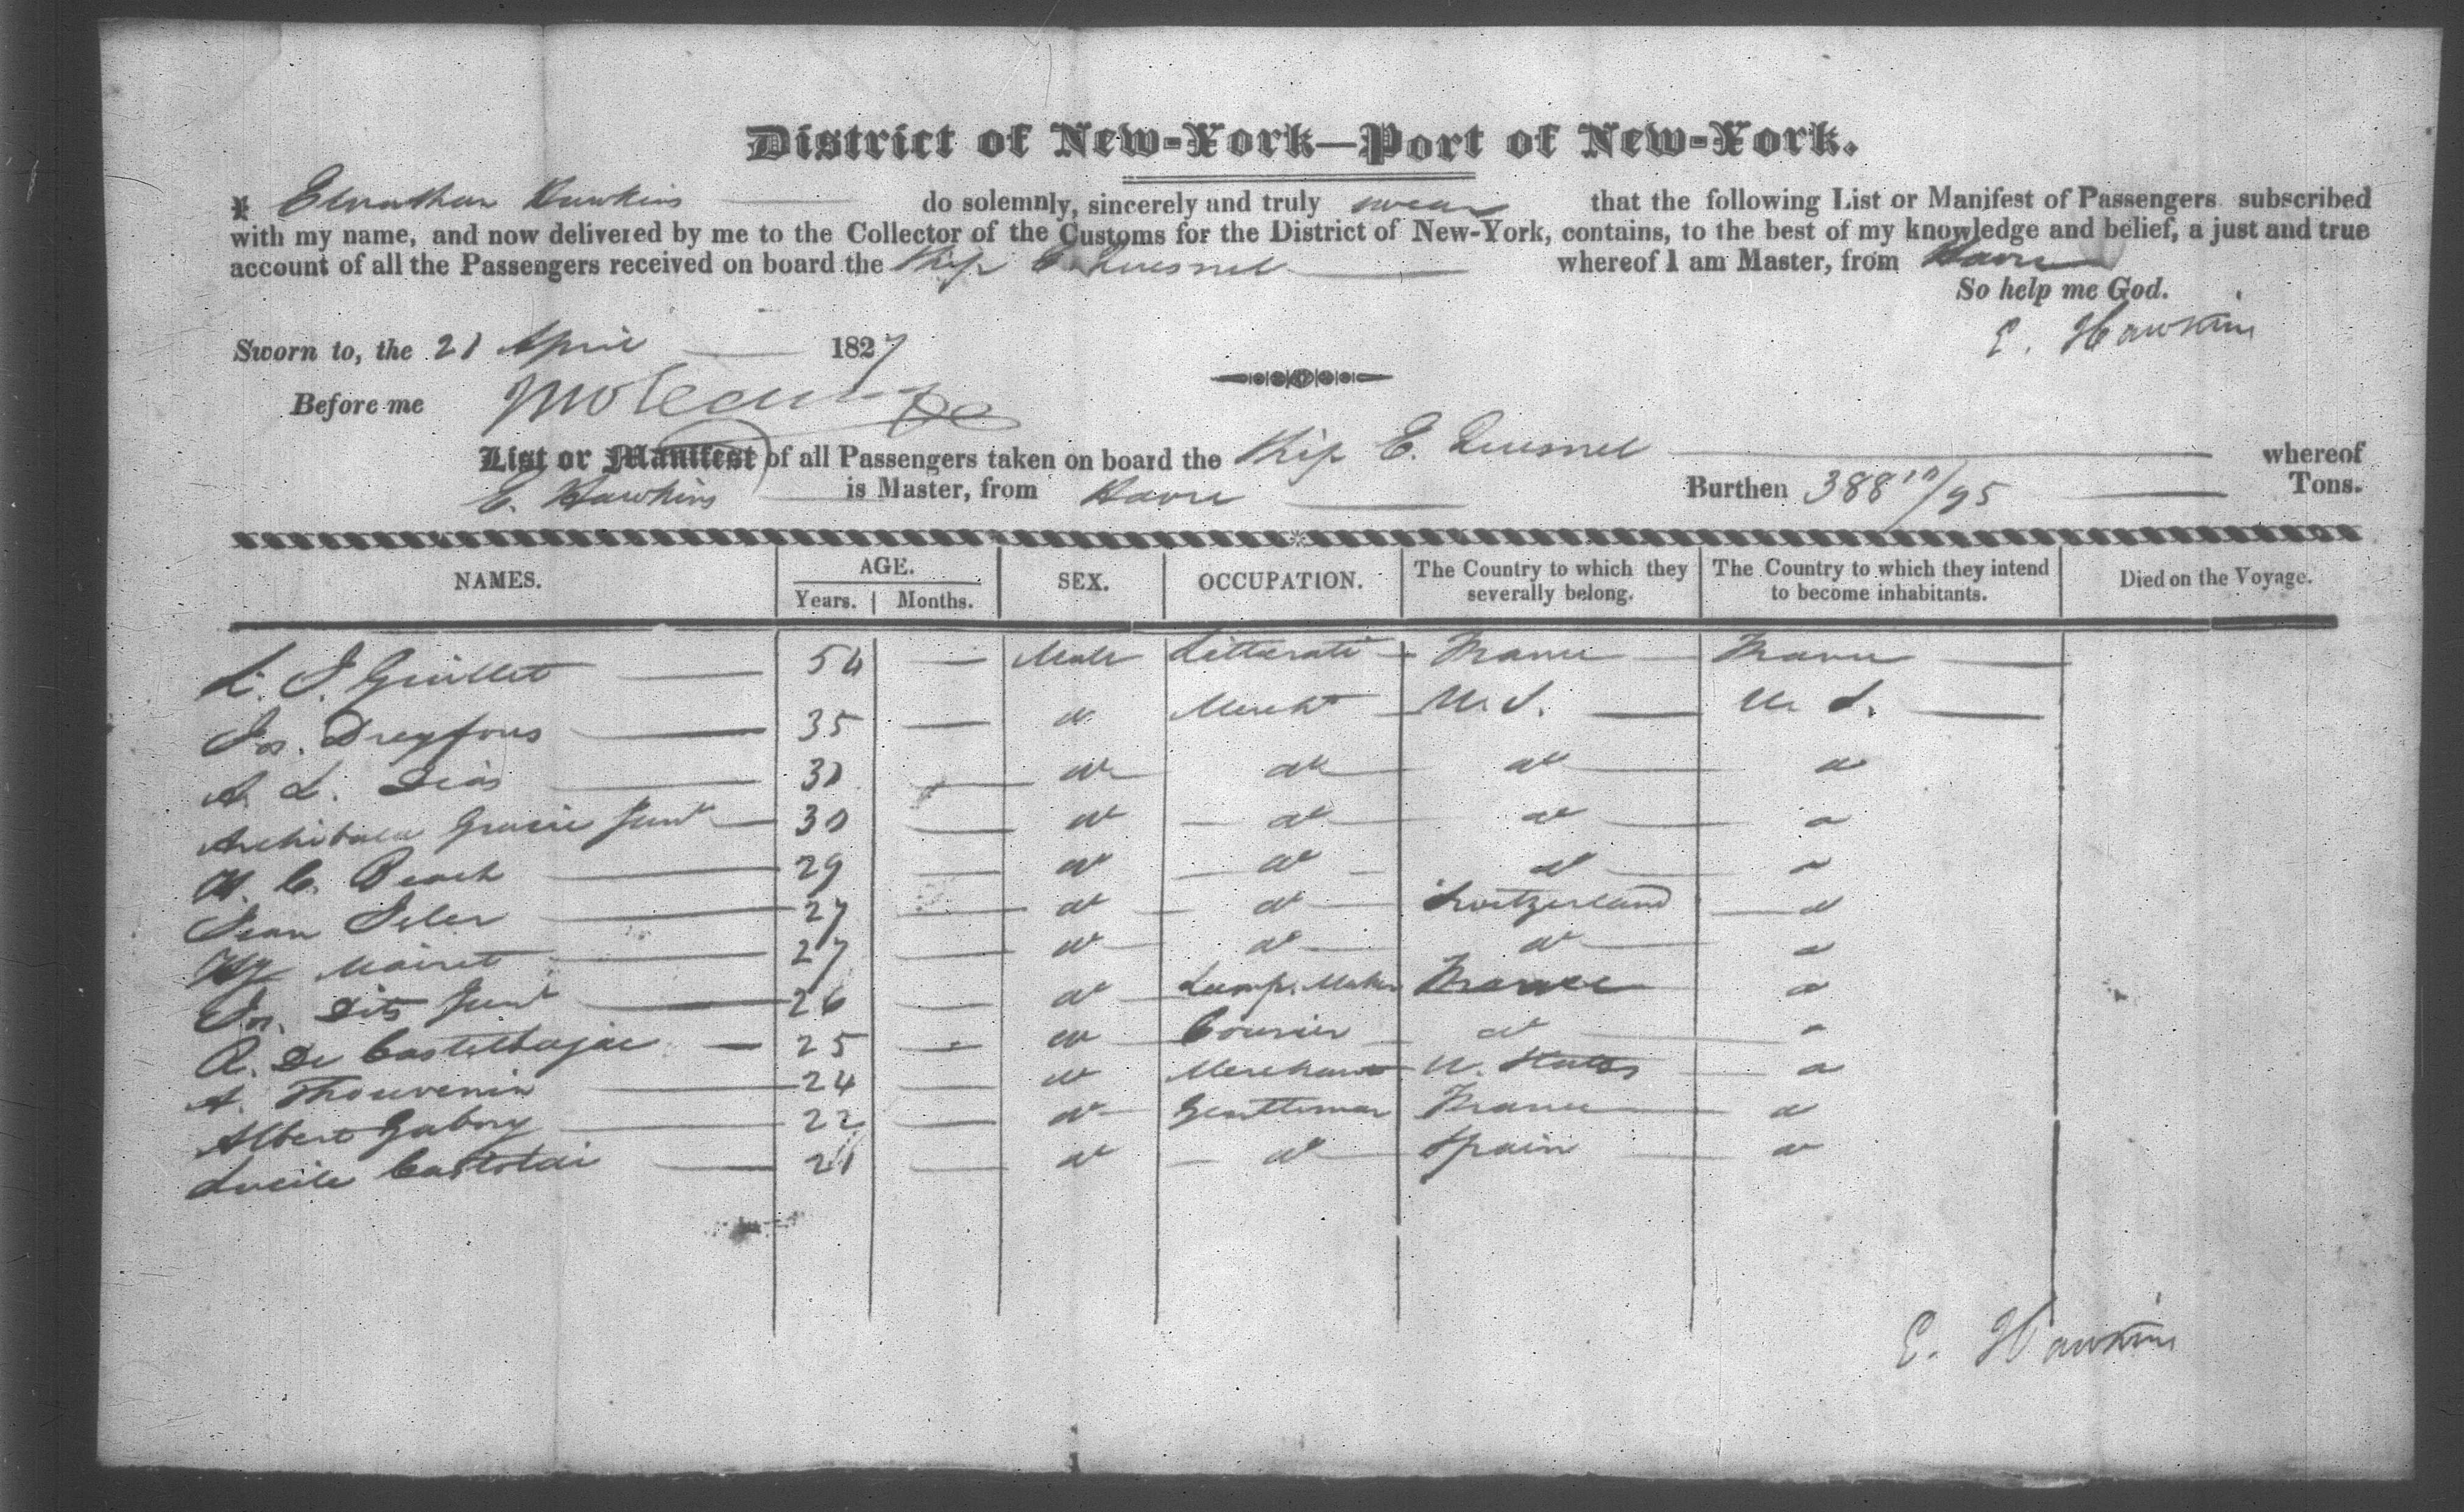 District of New-York—Port of New-York.
I Elnathan Hawkins do solemnly, sincerely and truly swear that the following List or Manifest of Passengers subscribed
with my name, and now delivered by me to the Collector of the Customs for the District of New-York, contains, to the best of my knowledge and belief, a just and true
account of all the Passengers received on board the Ship E. Quesnel whereof I am Master, from Havre
So help me God.
Sworn to, the 21 April 1827 E. Hawkins
Before me
List or Manifest of all Passengers taken on board the Ship E. Quesnel whereof
E. Hawkins is Master, from Havre Burthen 388 /95 Tons.
NAMES. AGE. Years. Months. SEX. OCCUPATION. The Country to which they severally belong. The Country to which they intend to become inhabitants. Died on the Voyage.
L. J. Guillet 54 — Male Litterati France France
Jos. Dreyfous 35 — do Mercht U.S. U.S.
A. L. Dias 30 do do do do
Archibald Gracie Junr 30 — do do do do
W. C. Beach 29 — do do do do
Jean Isler 27 — do do Switzerland do
Mairet 27 — do do do do
Jos. Junr 26 — do Lamp. Maker France do
A. De Castelbajac 25 — do Courier do do
A. Thouvenin 24 — do Merchant U. States do
Albert Gabory 22 — do Gentleman France do
Lucile 21 — do do Spain do
E. Hawkins